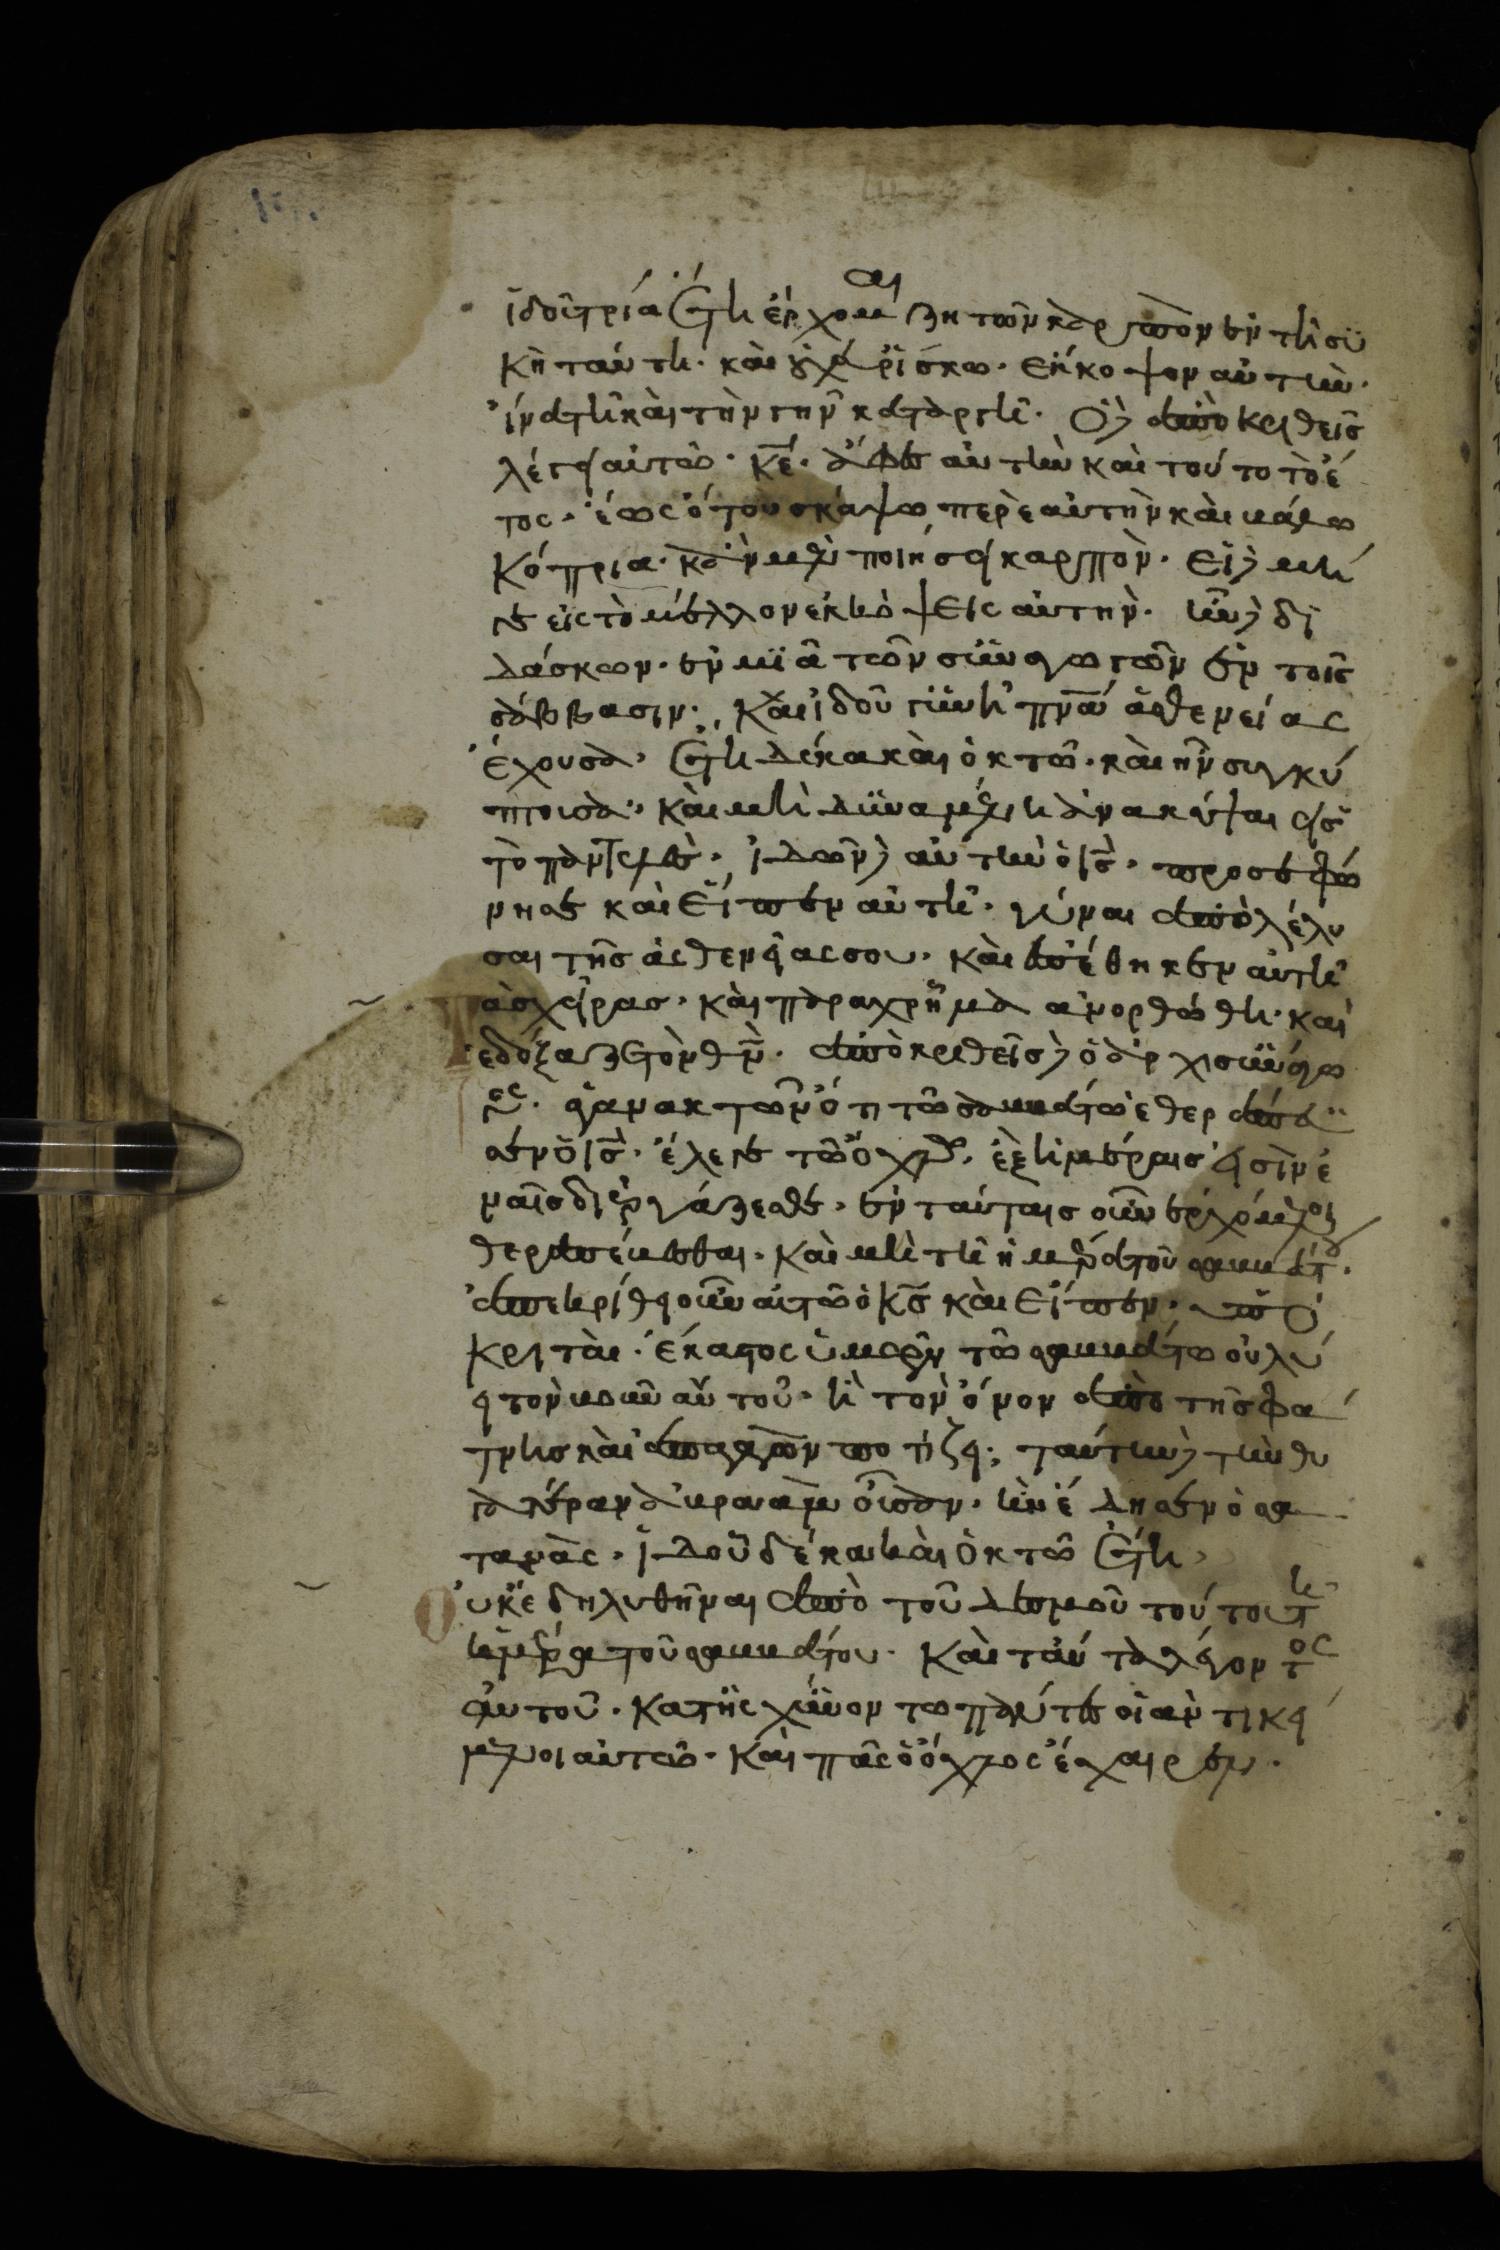 ἰδοῦ τρία ἔτη ἔρχομαι ζητῶν καρπὸν ἐν τῆ συ
κῆ ταύτη· καὶ οὐχ εὑρίσκω· ἔκκοψον αὐτὴν·
ἱνατὶ καὶ τὴν γῆν καταργεῖ· Ὁ δὲ ἀποκριθεὶς
λέγει αὐτῶ· κε̄· ἄφες αὐτὴν καὶ τοῦτο τὸ ἔ
τος· ἕως ὅτου σκάψω περὶ αὐτὴν καὶ βάλω
κόπρια· κἂν μὲν ποιήσει καρπὸν· εἰ δὲ μή
γε εἰς τὸ μέλλον ἐκκόψεις αὐτὴν· ἦν δὲ δι
δάσκων· ἐν μιᾶ τῶν συναγωγῶν ἐν τοῖς
σάββασιν· καὶ ἰδοῦ γυνὴ πνᾱ ἀσθενείας
ἔχουσα· ἔτη δέκα καὶ ὀκτῶ· καὶ ἦν συγκύ
πτουσα· καὶ μὴ δυναμένη ἀνακύψαι εἰς
τὸ παντελὲς· ἰδὼν δὲ αὐτὴν ὁ ις̄· προσεφώ
νησε καὶ εἶπεν αὐτῆ· γύναι ἀπολέλυ
σαι τῆς ἀσθενείας σου· καὶ ἐπέθηκεν αὐτῆ
τὰς χεῖρας· καὶ παραχρῆμα ἀνορθώθη· καὶ
ἐδόξαζε τὸν θν̄· ἀποκριθεὶς δὲ ὁ ἀρχισυνάγω
γος· ἀγανακτῶν ὅτι τῶ σαββάτω ἐθεράπευ
σεν ὁ ις̄· ἔλεγε τῶ ὄχλω· ἓξ ἡμέραις εἰσὶν ἐ
ν αἷς δεῖ ἐργάζεσθε· ἐν ταύταις οὖν ἐρχόμενοι
θεραπεύεσθαι· καὶ μὴ τῆ ἡμέρα τοῦ σαββάτου·
ἀπεκρίθη οὖν αὐτῶ ὁ κς̄ καὶ εἶπεν· ὑπο
κριταὶ· ἕκαστος ὑμῶν τῶ σαββάτω οὐ λύ
ει τὸν βοῦν αὐτοῦ· ἢ τὸν ὄνον ἀπὸ τῆς φά
τνης καὶ ἀπαγαγὼν ποτίζει· ταύτην δὲ τὴν θυ
γατέραν ἀβρααμ οὖσαν· ἣν ἔδησεν ὁ σα
τανὰς· ἰδοῦ δέκα καὶ ὀκτῶ ἔτη·
οὐκ ἔδει λυθῆναι ἀπὸ τοῦ δεσμοῦ τούτου τῆ
ἡμέρα τοῦ σαββάτου· καὶ ταῦτα λέγοντος
αὐτοῦ· κατησχύνοντο πάντες οἱ ἀντικεί
μενοι αὐτῶ· καὶ πᾶς ὁ ὄχλος ἔχαιρεν·